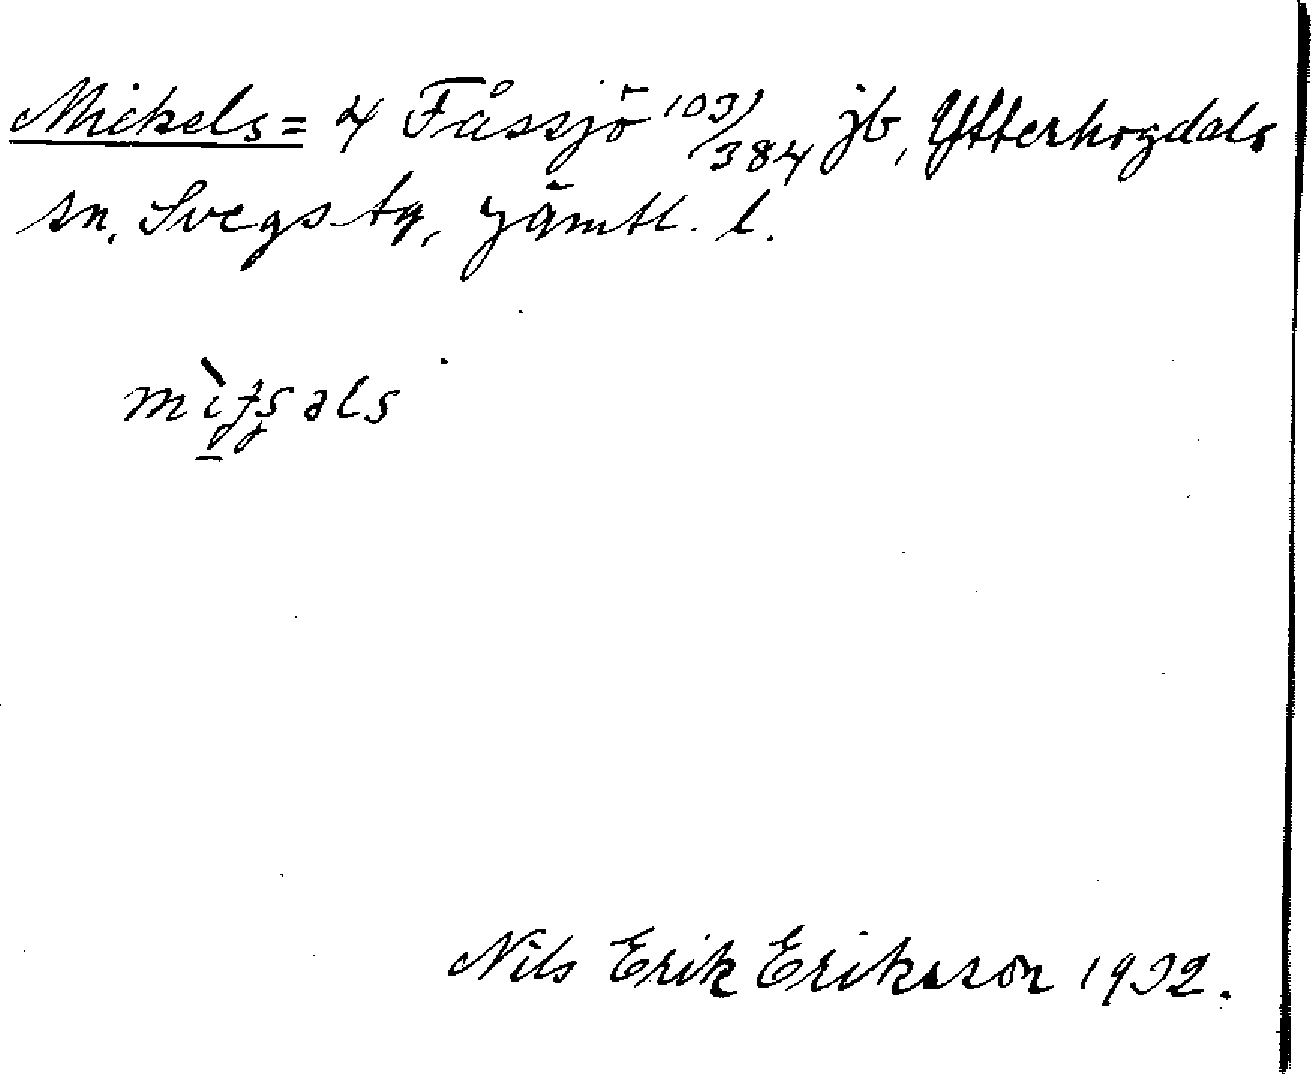 Mickels= 4 Fåssjö 103/384 jb, Ytterhogdals
sn. Svegs tg, Jämtl. l.
Nils Erik Eriksson 1932.